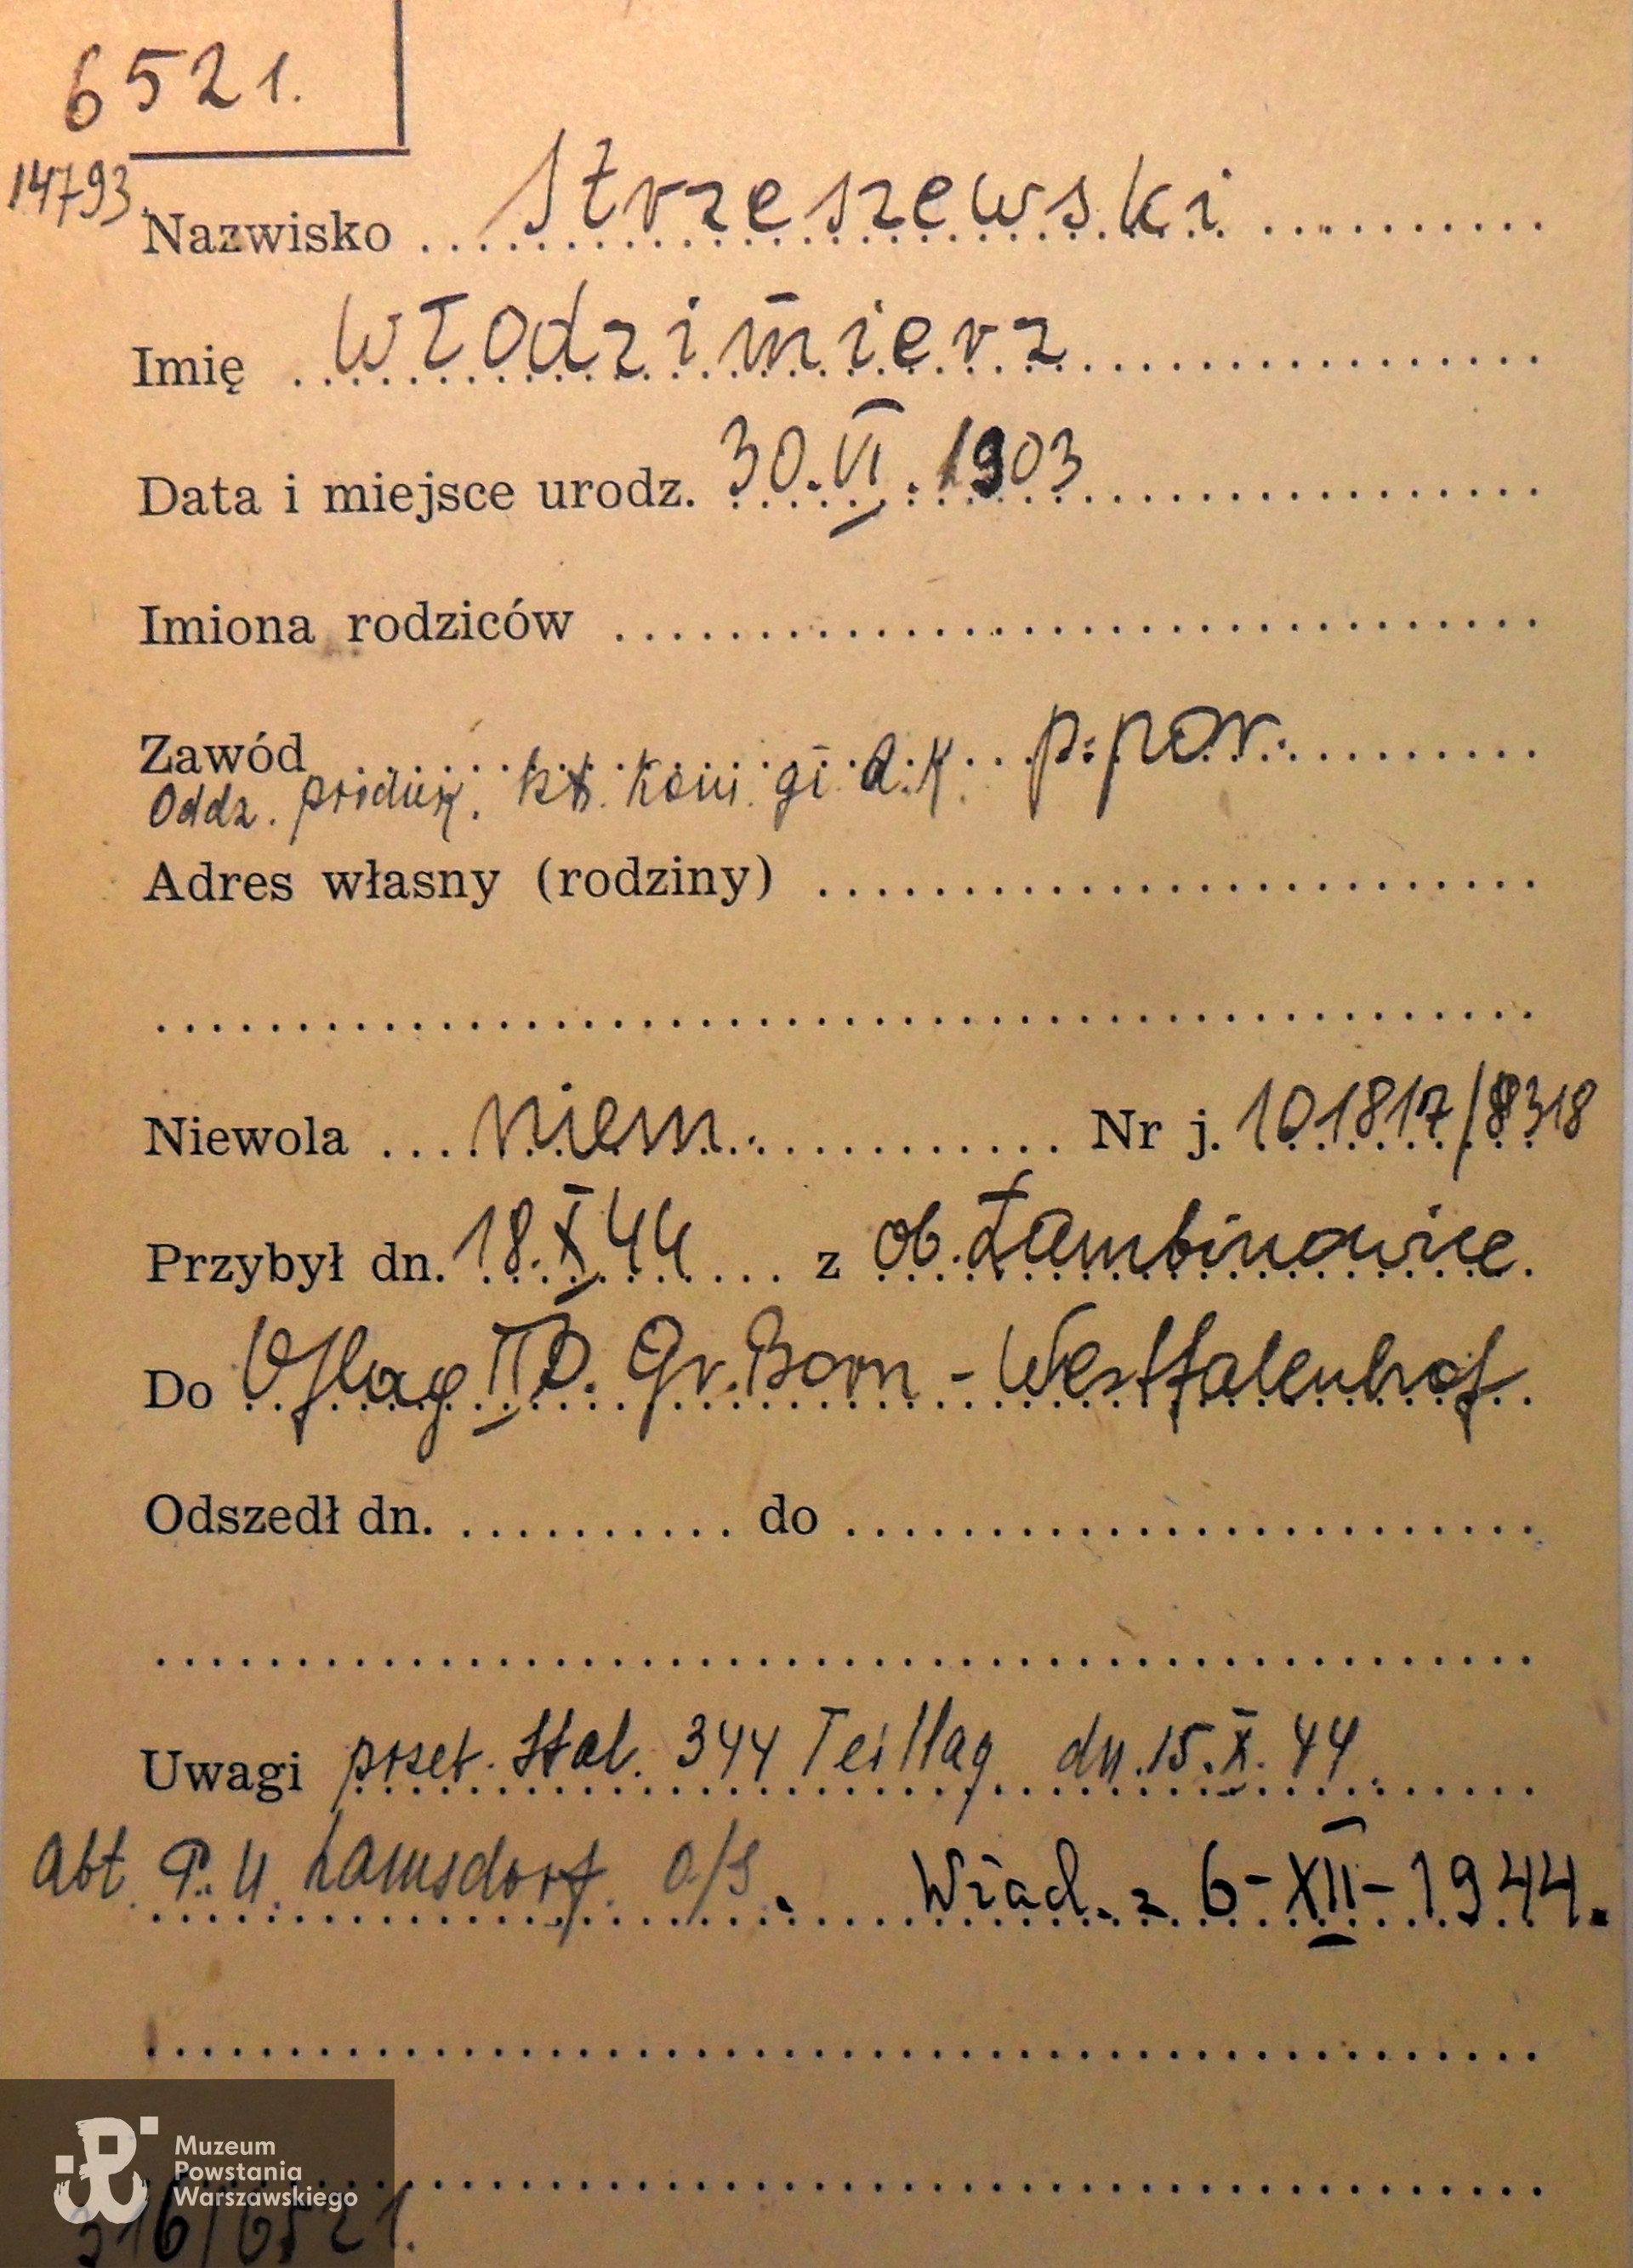 6521.
14793.
Nazwisko Strzeszewski
Imię Włodzimierz
Data i miejsce urodz. 30.VI.1903
Imiona rodziców
Zawód p.por.
Oddz. kt. d.K.
Adres własny (rodziny)
Niewola niem. Nr j. 101817/8318
Przybył dn. 18.X 44 z ob. Łambinowice
Do Oflag II D. Gr. Born - Westfalenhof.
Odszedł dn. do
Uwagi przet. Stal. 344 Teillag dn. 15.X.44
Abt. P.U. Lamsdorf O/S. Wiad. z 6-XII-1944.
Muzeum
Powstania
Warszawskiego
316/6521.